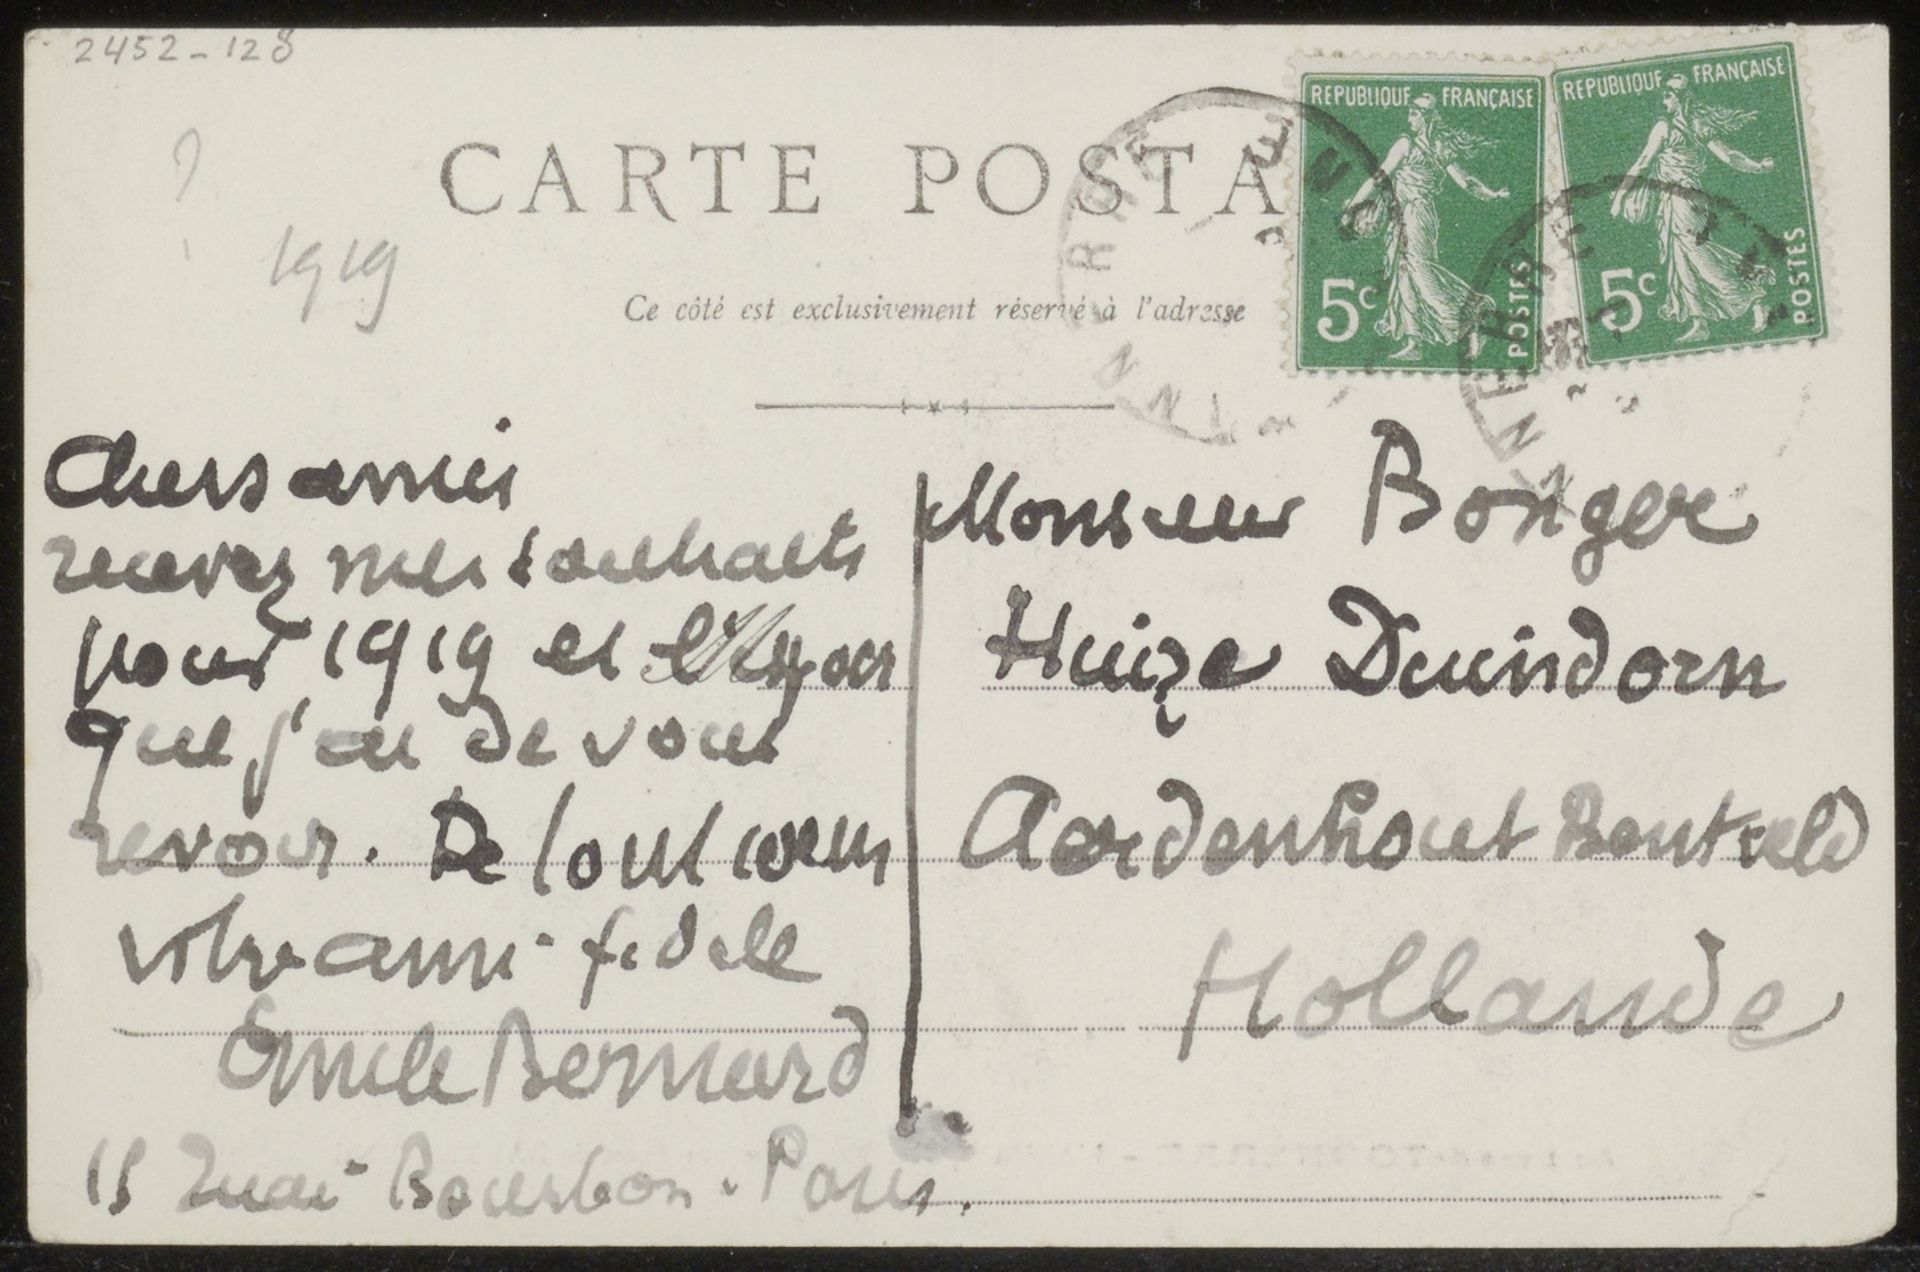 2452-128
?
1919
CARTE POSTA
Ce côté est exclusivement réservé à l'adresse
REPUBLIQUE FRANÇAISE
5c
POSTES
REPUBLIQUE FRANÇAISE
5c
POSTES
Chers amis
recevez mes souhaits
pour 1919 et l'espoir
que j'ai de vous
revoir. De tout coeur
votre ami fidèle
Emile Bernard
15 Quai Bourbon. Paris.
Monsieur Bonger
Huize Duindorn
Aerdenhout Bentveld
Hollande